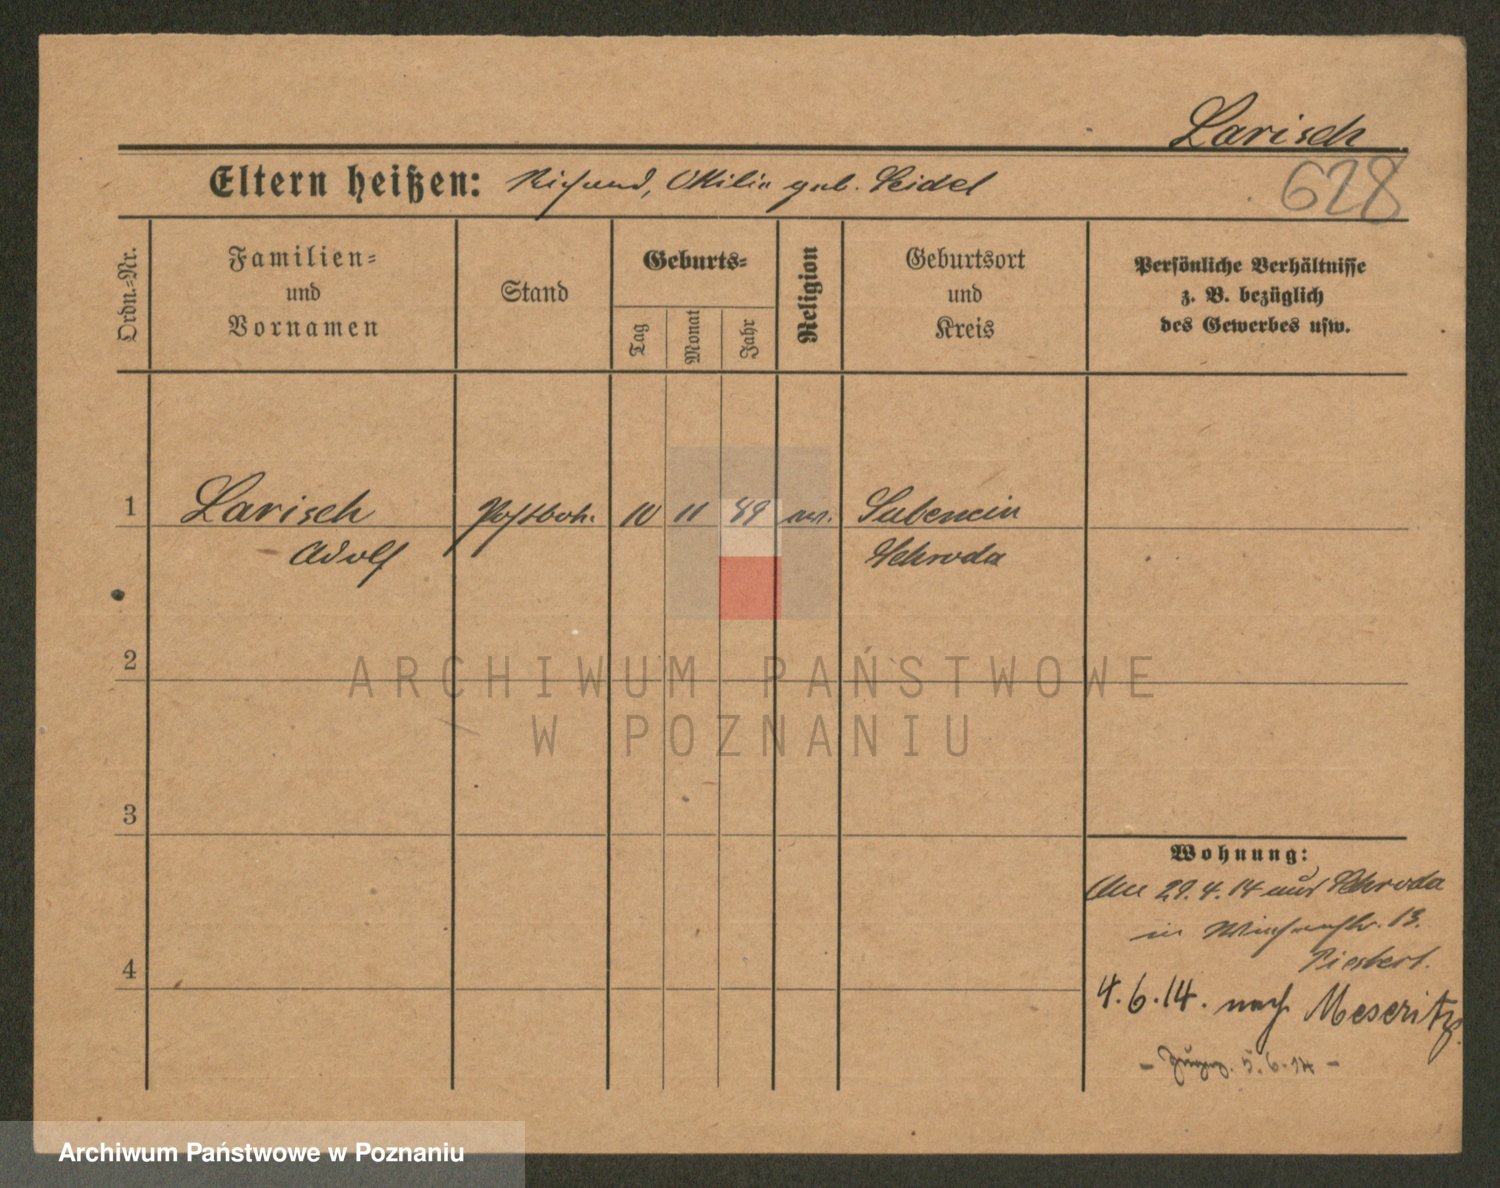 Larisch.
628
Eltern heißen: Richard, Ottilie geb. Seidel
Ordn.-Nr.
Familien-
und
Vornamen
Stand
Geburts-
Tag
Monat
Jahr
Religion
Geburtsort
und
Kreis
Persönliche Verhältnisse
z. B. bezüglich
des Gewerbes usw.
1 Larisch 10 11 89
Adolf Schroda
2
3
4
Wohnung:
29.4.14 aus Schroda
in 13.
4.6.14. nach Meseritz.
5.6.14 -
ARCHIWUM PAŃSTWOWE
W POZNANIU
Archiwum Państwowe w Poznaniu